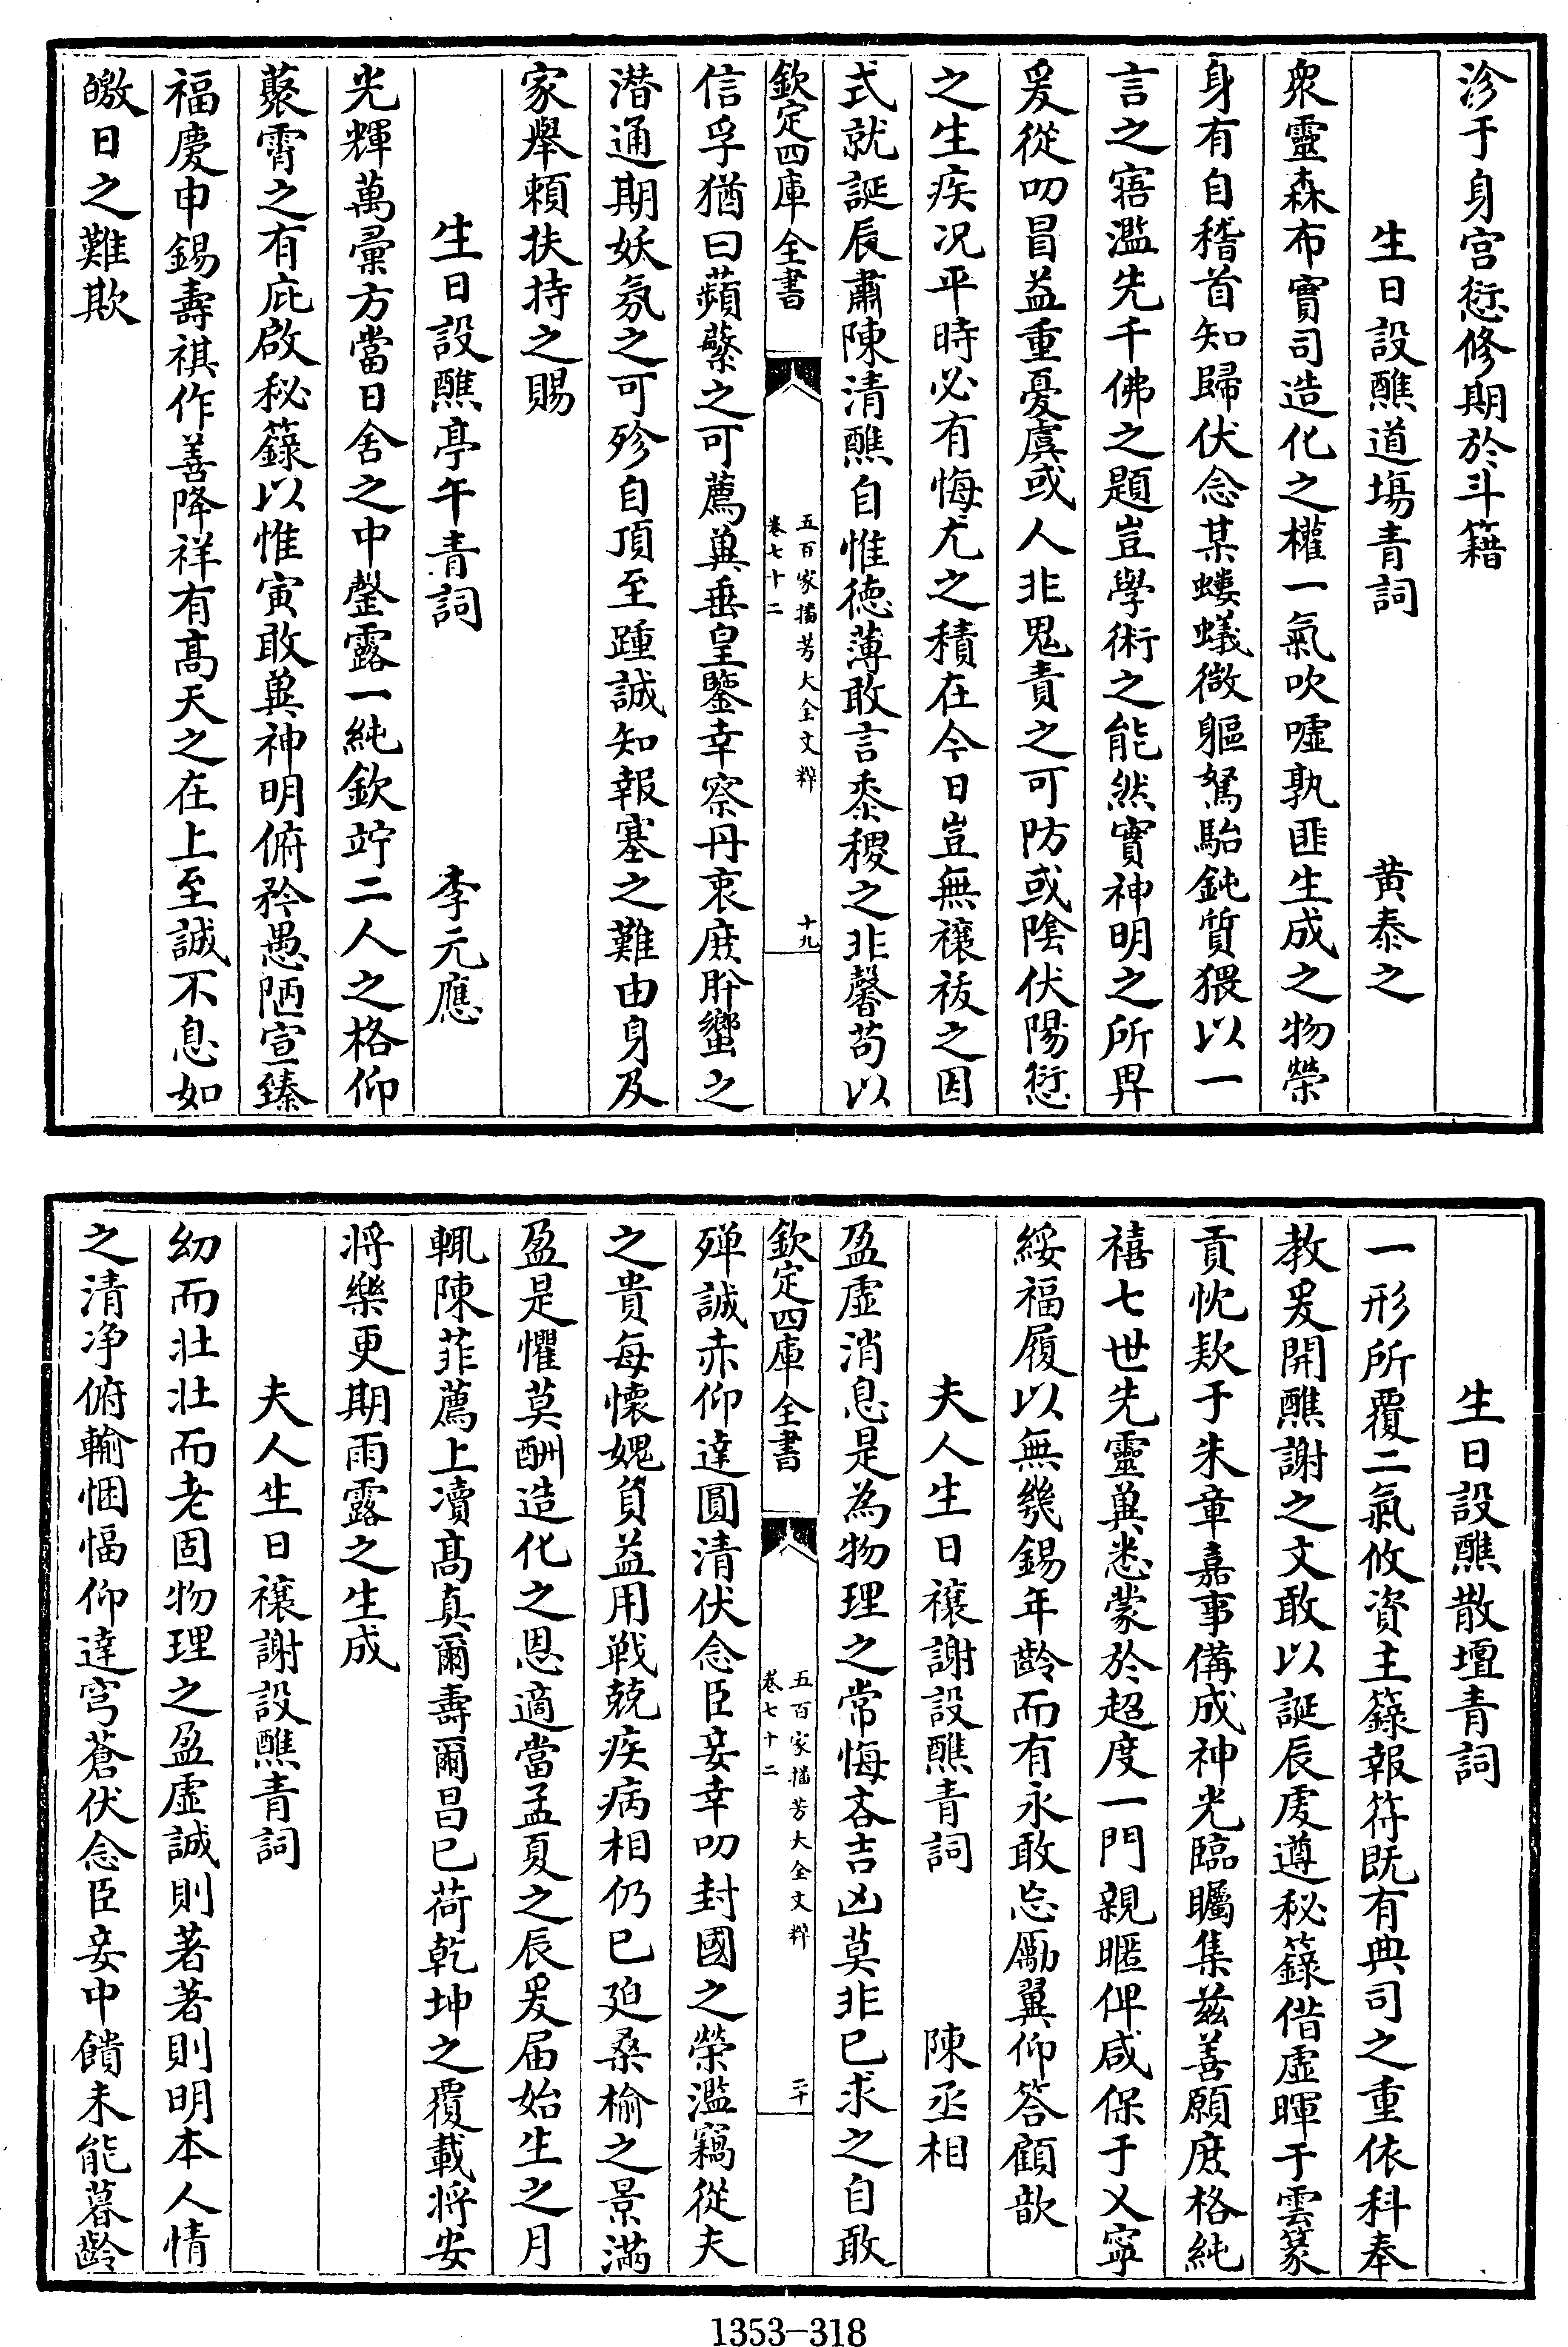 沴于身宫愆修期於斗籍
生日設醮道塲青詞 黄泰之
衆靈森布實司造化之權一氣吹噓孰匪生成之物榮
身有自稽首知歸伏念某螻蟻微軀駑駘鈍質猥以一
言之寤濫先千佛之題豈學術之能然實神明之所畀
爰從叨冒益重憂虞或人非鬼責之可防或陰伏陽愆
之生疾况平時必有悔尤之積在今日豈無禳祓之因
式就誕辰肅陳清醮自惟德薄敢言黍稷之非馨茍以
欽定四庫全書
五百家播芳大全文粹
卷七十二
十九
信孚猶曰蘋蘩之可薦冀垂皇鑒幸察丹衷庶肸蠁之
潜通期妖氛之可殄自頂至踵誠知報塞之難由身及
家舉頼扶持之賜
生日設醮亭午青詞 李元應
光輝萬彚方當日舍之中瀣露一純欽竚二人之格仰
蘂霄之有庇啟秘籙以惟寅敢兾神明俯矜愚陋宣臻
福慶申錫壽祺作善降祥有髙天之在上至誠不息如
皦日之難欺
生日設醮散壇青詞
一形所覆二氣攸資主籙報符既有典司之重依科奉
教爰開醮謝之文敢以誕辰䖍遵秘籙借虚暉于雲篆
貢忱欵于朱章嘉事備成神光臨矚集兹善願庶格純
禧七世先靈兾悉蒙於超度一門親暱俾咸保于乂寧
綏福履以無幾錫年齡而有永敢忘勵翼仰答顧歆
夫人生日禳謝設醮青詞 陳丞相
盈虚消息是為物理之常悔吝吉凶莫非已求之自敢
欽定四庫全書
五百家播芳大全文粹
卷七十二
二十
殫誠赤仰達圓清伏念臣妾幸叨封國之榮濫竊從夫
之貴每懐媿負益用戰兢疾病相仍已廹桑榆之景滿
盈是懼莫酬造化之恩適當孟夏之辰爰届始生之月
輒陳菲薦上凟髙真爾壽爾昌已荷乾坤之覆載將安
將樂更期雨露之生成
夫人生日禳謝設醮青詞
幼而壯壯而老固物理之盈虚誠則著著則明本人情
之清净俯輸悃愊仰達穹蒼伏念臣妾中饋未能暮齡
1353-318